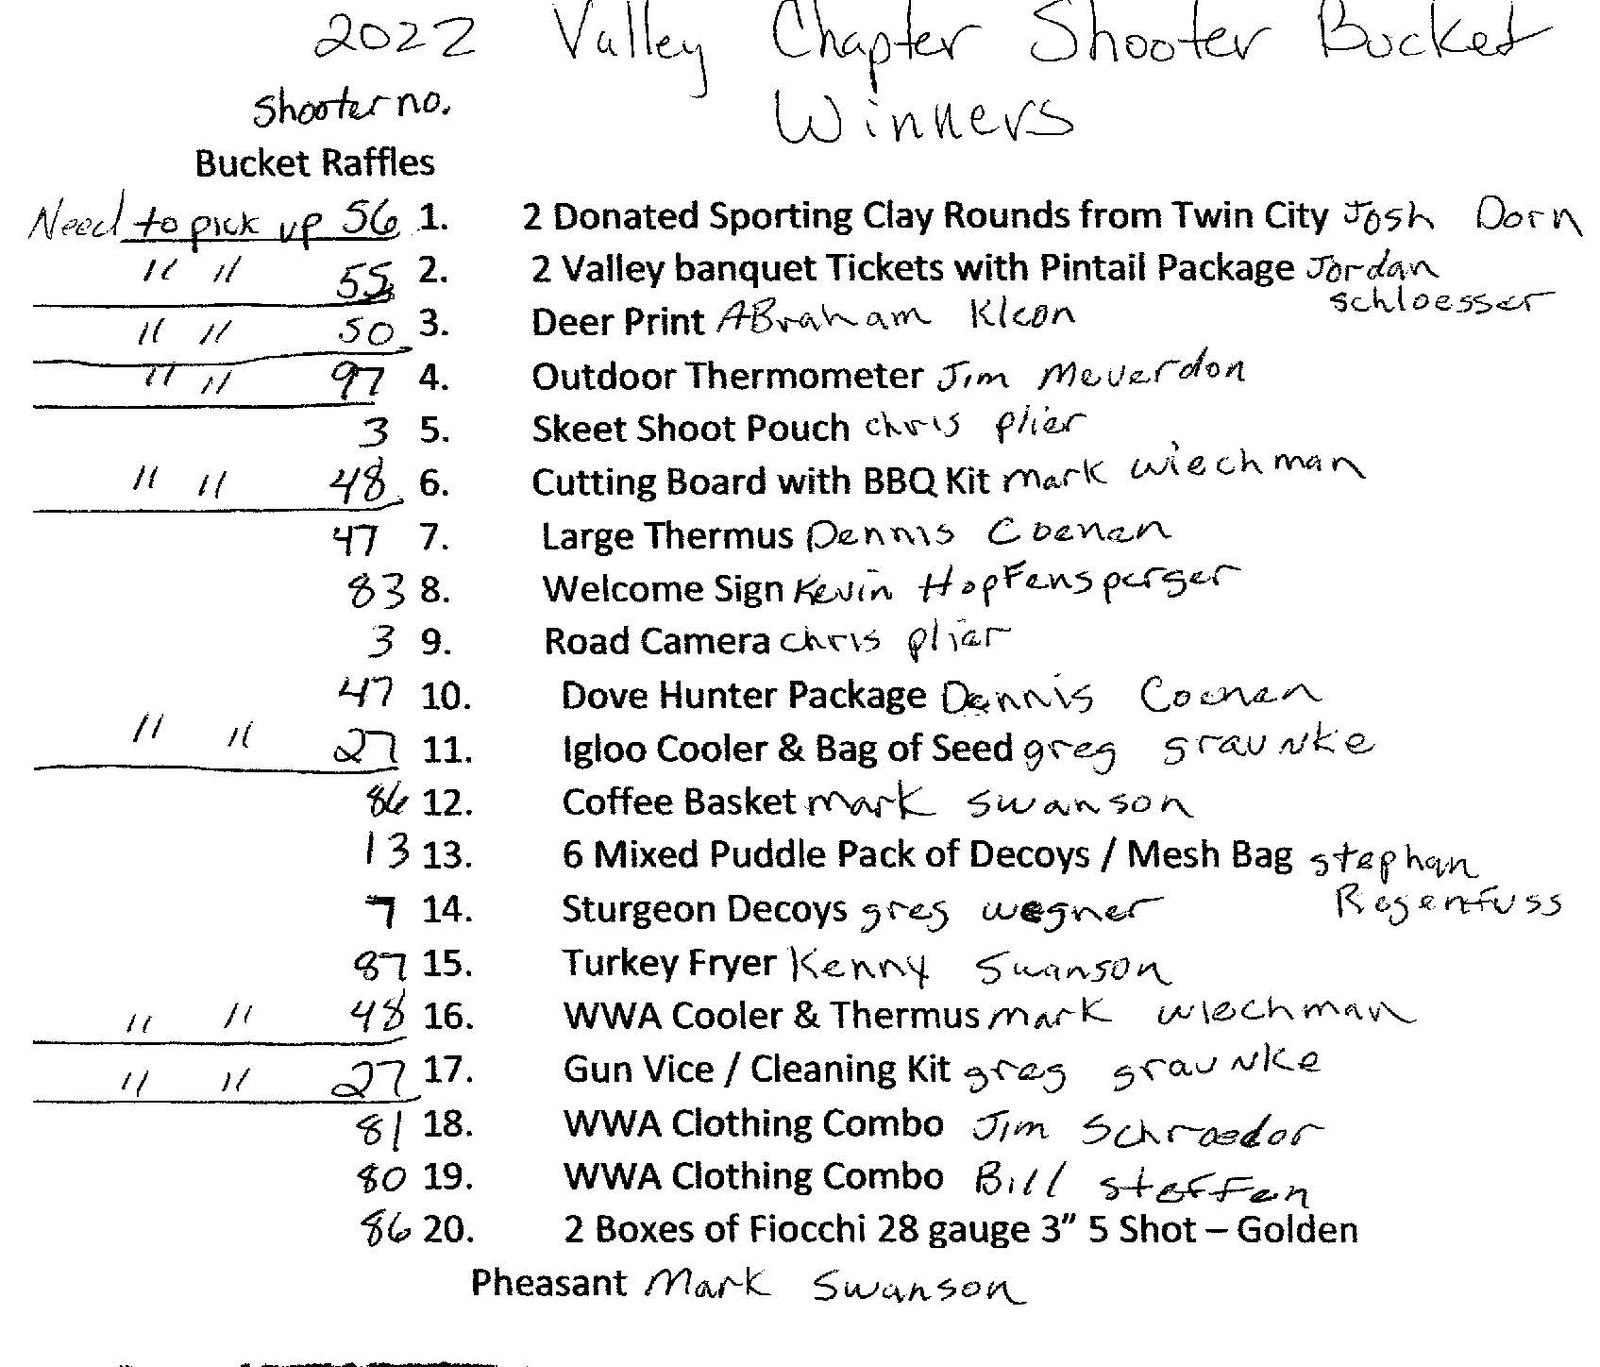 2022 Valley Chapter Shooter Bucket
Winners
Shooter no.
Bucket Raffles
Need to pick up 56 1. 2 Donated Sporting Clay Rounds from Twin City Josh Dorn
" " 55 2. 2 Valley banquet Tickets with Pintail Package Jordan
Schloesser
" " 50 3. Deer Print ABraham Kleon
" " 97 4. Outdoor Thermometer Jim Meverdon
3 5. Skeet Shoot Pouch chris plier
" " 48 6. Cutting Board with BBQ Kit mark wiechman
47 7. Large Thermus Dennis Coenen
83 8. Welcome Sign Kevin Hopfensperger
3 9. Road Camera chris plier
47 10. Dove Hunter Package Dennis Coenen
" " 27 11. Igloo Cooler & Bag of Seed greg graunke
86 12. Coffee Basket mark swanson
13 13. 6 Mixed Puddle Pack of Decoys / Mesh Bag stephan
Regenfuss
7 14. Sturgeon Decoys greg wegner
87 15. Turkey Fryer Kenny Swanson
" " 48 16. WWA Cooler & Thermus mark wiechman
" " 27 17. Gun Vice / Cleaning Kit greg graunke
81 18. WWA Clothing Combo Jim Schroedor
80 19. WWA Clothing Combo Bill steffen
86 20. 2 Boxes of Fiocchi 28 gauge 3” 5 Shot – Golden
Pheasant Mark Swanson